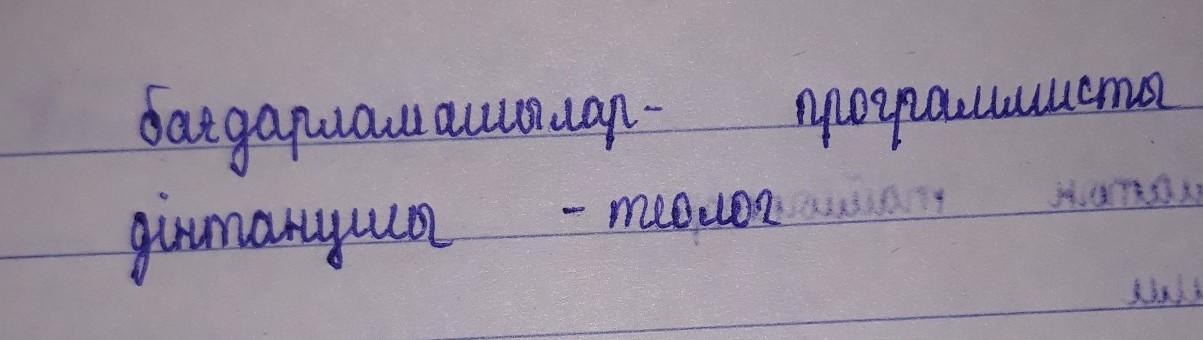 бағдарламашылар- программисты
дінтанушы - теолог